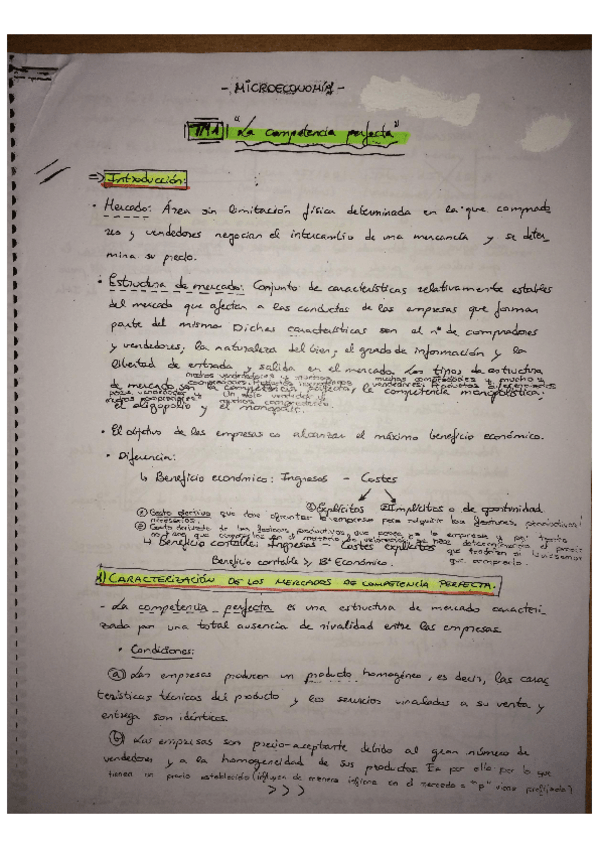 - MICROECONOMÍA -
TMA 1 "La competencia perfecta"
⇒ Introducción:
· Mercado: Área sin limitación física determinada en la que comprado
res y vendedores negocian el intercambio de una mercancía y se deter
mina su precio.
· Estructura de mercado: Conjunto de características relativamente estables
del mercado que afectan a las conductas de las empresas que forman
parte del mismo. Dichas características son el nº de compradores
y vendedores, la naturaleza del bien, el grado de información y la
libertad de entrada y salida en el mercado. Los tipos de estructura
de mercado son la competencia perfecta, la competencia monopolística,
el oligopolio y el monopolio.
· El objetivo de las empresas es alcanzar el máximo beneficio económico.
· Diferencia:
↳ Beneficio económico: Ingresos - Costes
① Explícitos ② Implícitos o de oportunidad.
① Gasto efectivo que debe afrontar la empresa para adquirir los factores
necesarios.
② Coste derivado de los factores productivos que posee la empresa y por tanto
↳ Beneficio contable: Ingresos - Costes explícitos
Beneficio contable ≥ Bº Económico.
1) CARACTERIZACIÓN DE LOS MERCADOS DE COMPETENCIA PERFECTA.
- La competencia perfecta es una estructura de mercado caracteri
zada por una total ausencia de rivalidad entre las empresas
· Condiciones:
ⓐ Las empresas producen un producto homogéneo, es decir, las carac
terísticas técnicas del producto y los servicios vinculados a su venta y
entrega son idénticos.
ⓑ Las empresas son precio-aceptante debido al gran número de
vendedores y a la homogeneidad de sus productos. Es por ello por lo que
tienen un precio establecido (influyen de manera ínfima en el mercado → "p" viene prefijado)
> > >